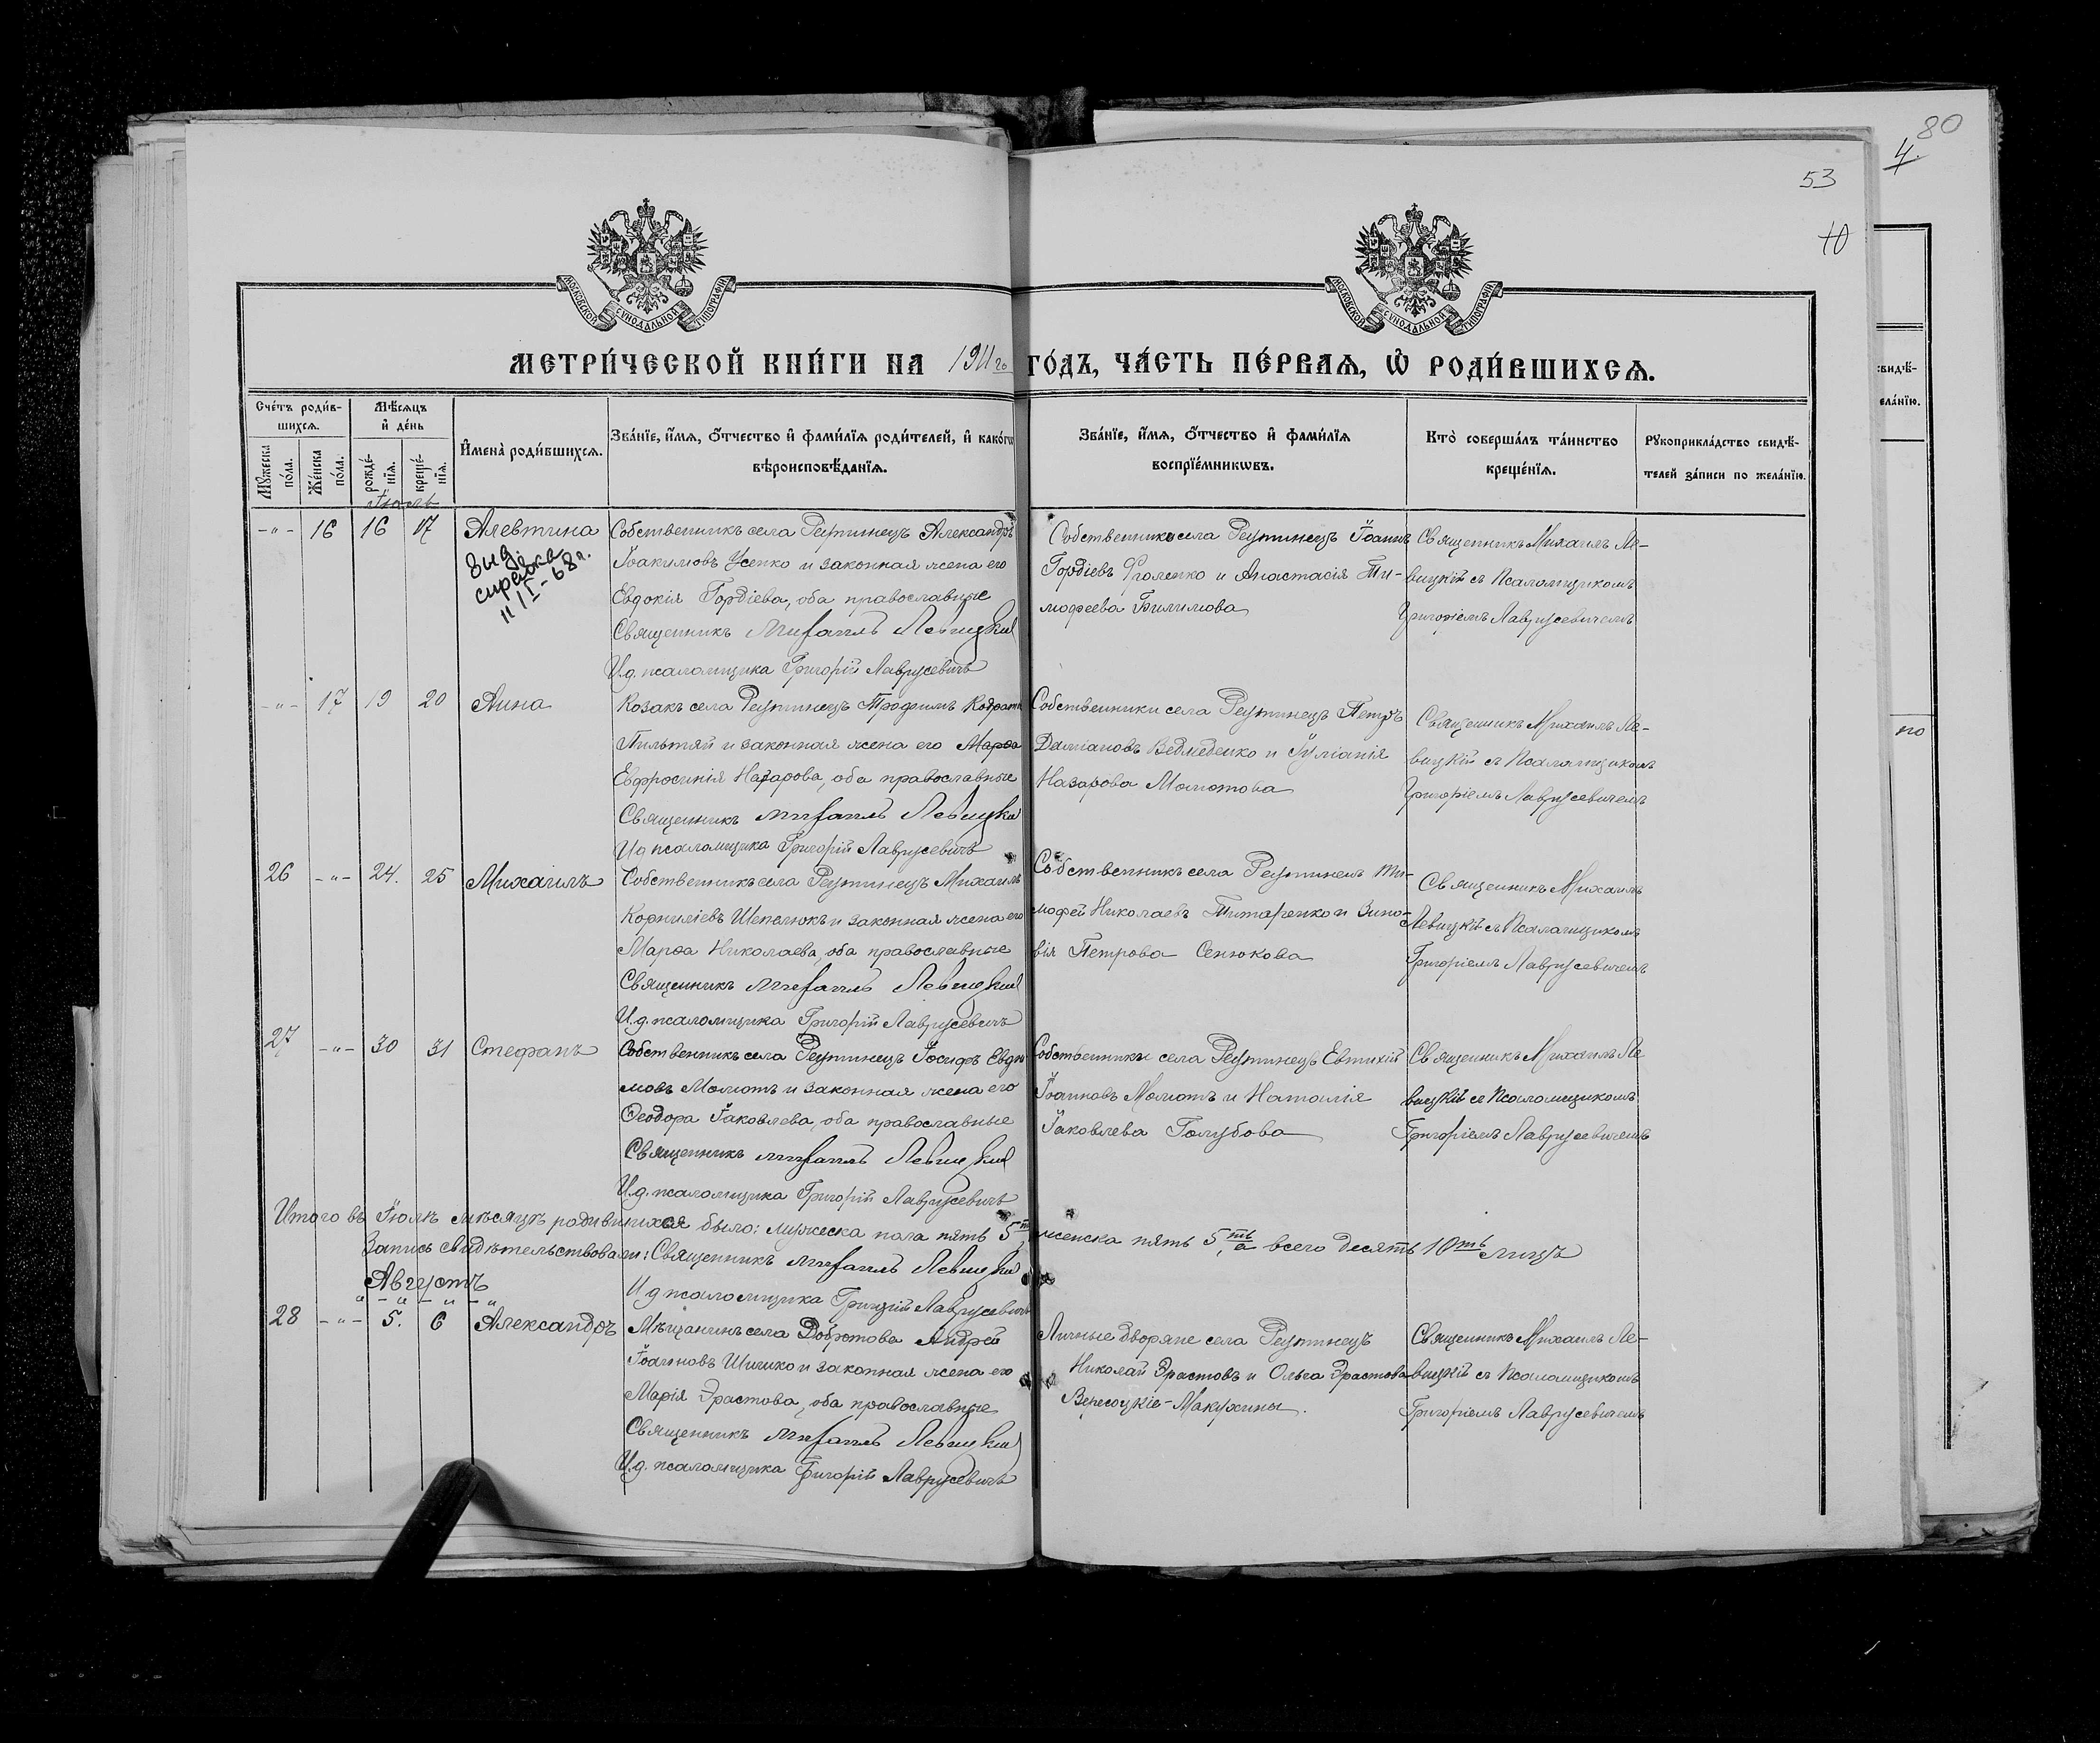 80
4
53
10
МОСКОВСКОЙ СѴНОДАЛЬНОЙ ТИПОГРАФІИ
МОСКОВСКОЙ СѴНОДАЛЬНОЙ ТИПОГРАФІИ
МЕТРИ́ЧЕСКОЙ КНИ́ГИ НА 1911 го ГО́ДЪ, ЧА́СТЬ ПЕ́РВАѦ, Ѡ҆ РОДИ́ВШИХСѦ.
Сче́тъ роди́в-
шихсѧ.
Мꙋ́жеска по́ла.
Же́нска по́ла.
Мѣ́сѧцъ
и҆ де́нь
рожде́-
нїѧ.
креще́-
нїѧ.
И҆мена̀ роди́вшихсѧ.
Зва́нїе, и҆́мѧ, ѻ҆́тчество и҆ фами́лїѧ роди́телей, и҆ како́гѡ
вѣроисповѣ́данїѧ.
Зва́нїе, и҆́мѧ, ѻ҆́тчество и҆ фами́лїѧ
воспрїе́мникѡвъ.
Кто̀ соверша́лъ та́инство
креще́нїѧ.
Рꙋкоприкла́дство свидѣ́-
телей за́писи по жела́нїю.
свидѣ́-
ела́нїю.
по
Іюль
-"- 16 16 17 Алевтина
выд.
справка
11/I-68г.
Собственникъ села Реутинецъ Александръ
Іоакимовъ Усенко и законная жена его
Евдокія Гордіева, оба православные
Священникъ Михаилъ Левицкій
И.д. псаломщика Григорій Лаврусевичъ
Собственники села Реутинецъ Іоаннъ
Гордіевъ Фроленко и Анастасія Ти-
мофеева Билимова
Священникъ Михаилъ Ле-
вицкій съ Псаломщикомъ
Григоріемъ Лаврусевичемъ
-"- 17 19 20 Анна
Козакъ села Реутинецъ Трофимъ
Пильтяй и законная жена его Марѳа
Евфросинія Назарова, оба православные
Священникъ Михаилъ Левицкій
И.д. псаломщика Григорій Лаврусевичъ
Собственники села Реутинецъ Петръ
Даміановъ Ведмеденко и Іуліанія
Назарова Молотова
Священникъ Михаилъ Ле-
вицкій съ Псаломщикомъ
Григоріемъ Лаврусевичемъ
26 -"- 24. 25 Михаилъ
Собственникъ села Реутинецъ Михаилъ
Корниліевъ Шепелюкъ и законная жена его
Марѳа Николаева, оба православные
Священникъ Михаилъ Левицкій
И.д. псаломщика Григорій Лаврусевичъ
Собственникъ села Реутинецъ Ти-
мофей Николаевъ Титаренко и Зино-
вія Петрова Сенюкова
Священникъ Михаилъ
Левицкій съ Псаломщикомъ
Григоріемъ Лаврусевичемъ
27 -"- 30 31 Стефанъ
Собственникъ села Реутинецъ Іосифъ Евдо-
мовъ Молотъ и законная жена его
Ѳеодора Іаковлева, оба православные
Священникъ Михаилъ Левицкій
И.д. псаломщика Григорій Лаврусевичъ
Собственники села Реутинецъ Евтихій
Іоанновъ Молотъ и Наталія
Іаковлева Голубова
Священникъ Михаилъ Ле-
вицкій съ Псаломщикомъ
Григоріемъ Лаврусевичемъ
Итого въ Іюлѣ мѣсяцѣ родившихся было: мужеска пола пять 5ть, женска пять 5ть, а всего десять 10ть лицъ
Запись свидѣтельствовали: Священникъ Михаилъ Левицкій
И.д. псаломщика Григорій Лаврусевичъ
Августъ
28 -"- 5. 6 Александръ
Мѣщанинъ села Добротова Андрей
Іоанновъ Шишко и законная жена его
Марія Эрастова, оба православные
Священникъ Михаилъ Левицкій
И.д. псаломщика Григорій Лаврусевичъ
Личные дворяне села Реутинецъ
Николай Эрастовъ и Ольга Эрастова
Вересоцкіе-Макухины.
Священникъ Михаилъ Ле-
вицкій съ Псаломщикомъ
Григоріемъ Лаврусевичемъ